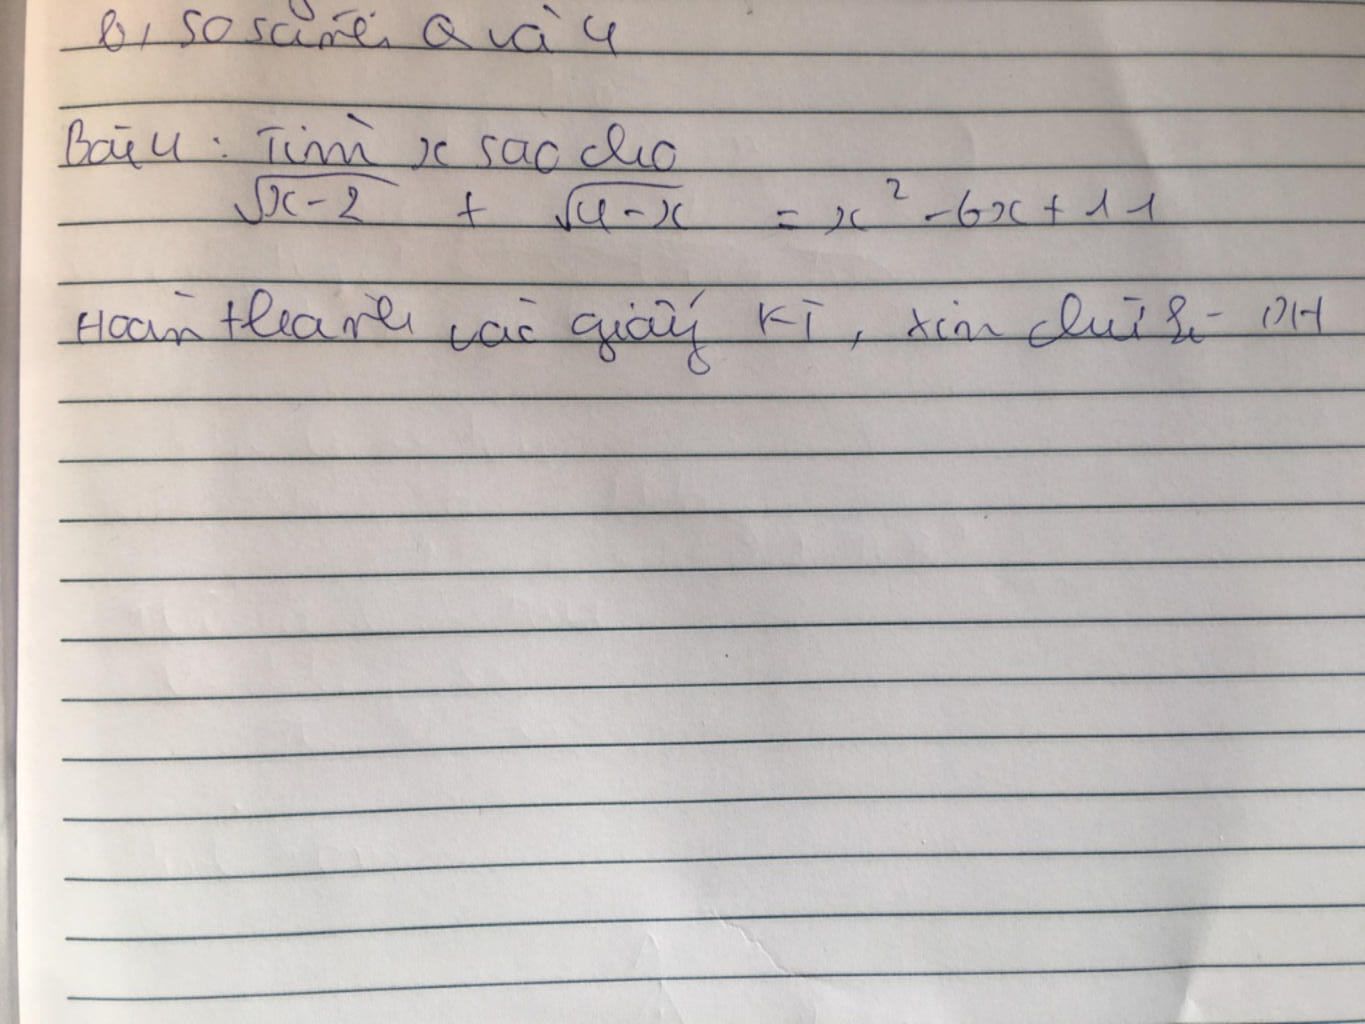 b, so sánh Q và 4
Bài 4 : Tìm x sao cho
√x-2 + √4-x = x² -6x+11
Hoàn thành vào giấy KT, xin chữ kí PH